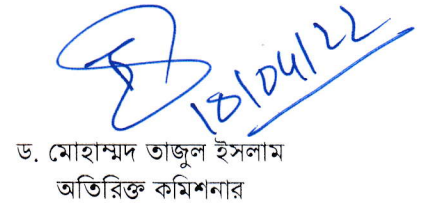 18/04/22
ড. মোহাম্মদ তাজুল ইসলাম
অতিরিক্ত কমিশনার